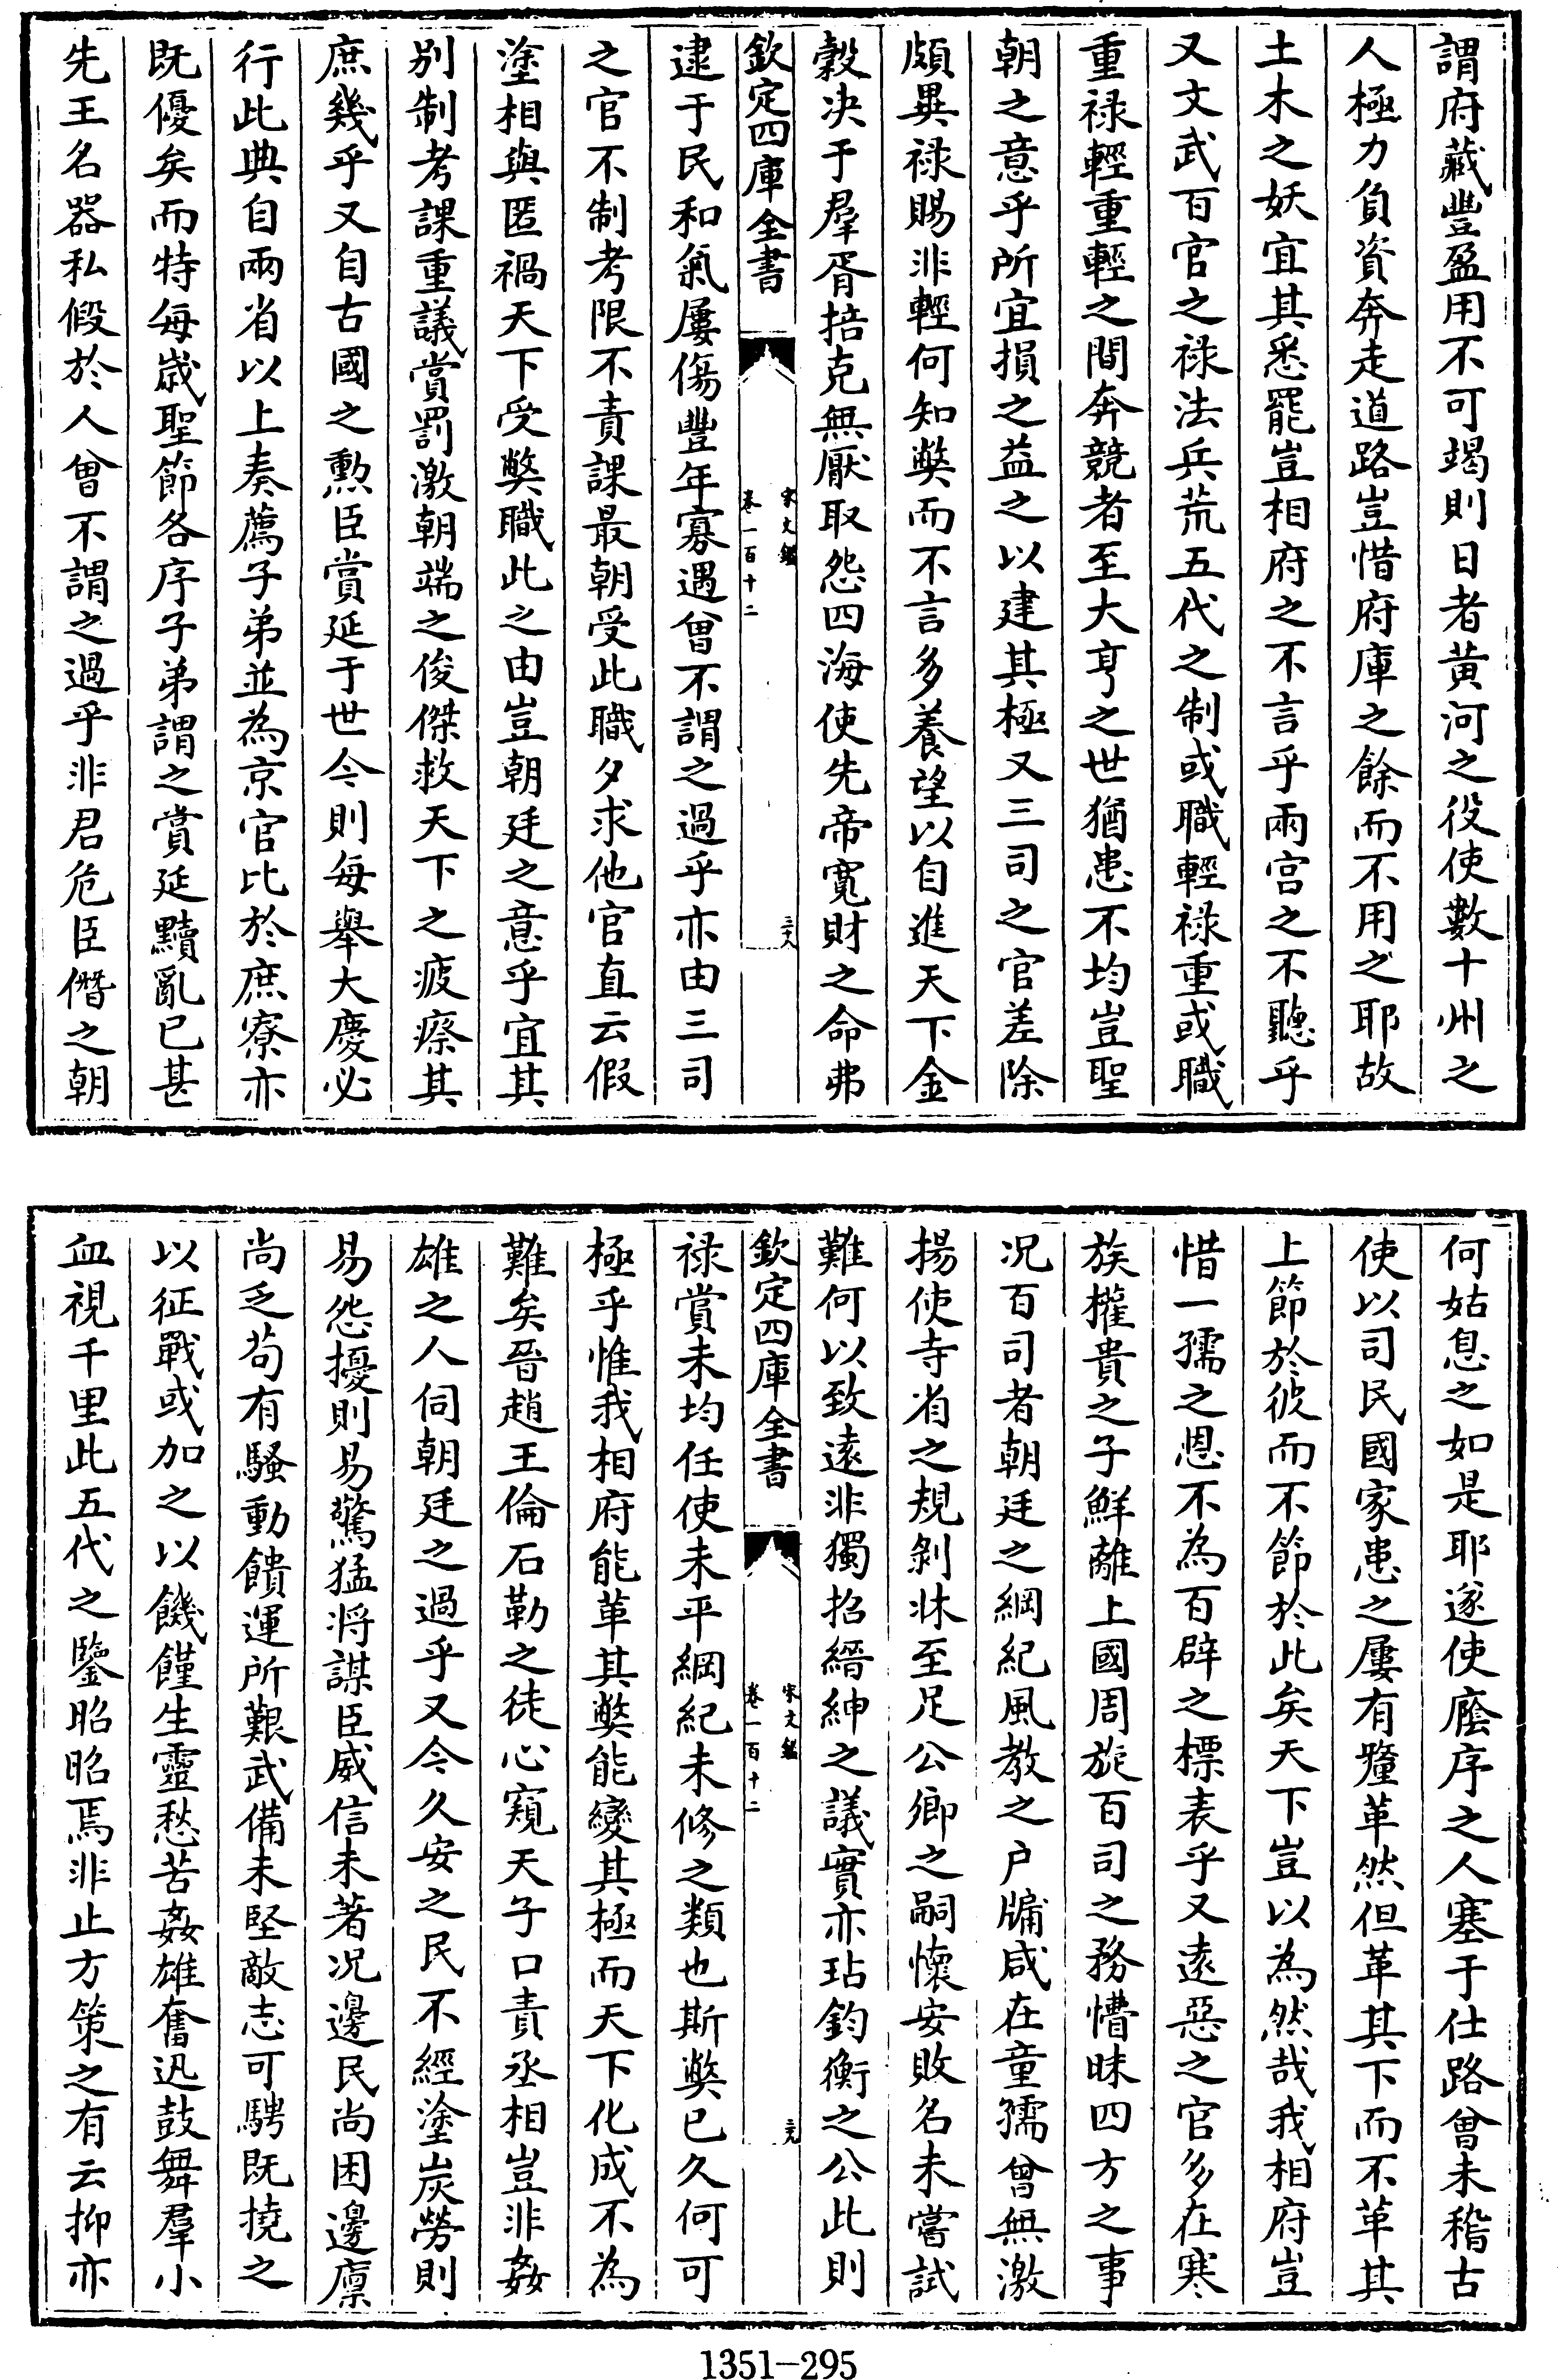 謂府藏豐盈用不可竭則日者黄河之役使數十州之
人極力負資奔走道路豈惜府庫之餘而不用之耶故
土木之妖宜其悉罷豈相府之不言乎兩宫之不聽乎
又文武百官之禄法兵荒五代之制或職輕禄重或職
重禄輕重輕之間奔競者至大亨之世猶患不均豈聖
朝之意乎所宜損之益之以建其極又三司之官差除
頗異禄賜非輕何知弊而不言多養望以自進天下金
穀决于羣胥掊克無厭取怨四海使先帝寛財之命弗
欽定四庫全書
宋文鑑
卷一百十二
三十八
逮于民和氣屢傷豐年寡遇曾不謂之過乎亦由三司
之官不制考限不責課最朝受此職夕求他官直云假
塗相與匿禍天下受弊職此之由豈朝廷之意乎宜其
别制考課重議賞罰激朝端之俊傑救天下之疲瘵其
庶幾乎又自古國之勲臣賞延于世今則每舉大慶必
行此典自兩省以上奏薦子弟並為京官比於庶寮亦
既優矣而特每歳聖節各序子弟謂之賞延黷亂已甚
先王名器私假於人曾不謂之過乎非君危臣僭之朝
何姑息之如是耶遂使廕序之人塞于仕路曾未稽古
使以司民國家患之屢有釐革然但革其下而不革其
上節於彼而不節於此矣天下豈以為然哉我相府豈
惜一孺之恩不為百辟之標表乎又逺惡之官多在寒
族權貴之子鮮離上國周旋百司之務懵昧四方之事
况百司者朝廷之綱紀風教之户牖咸在童孺曾無激
揚使寺省之規剥牀至足公卿之嗣懷安敗名未嘗試
難何以致逺非獨招縉紳之議實亦玷鈞衡之公此則
欽定四庫全書
宋文鑑
卷一百十二
三十九
禄賞未均任使未平綱紀未修之類也斯弊已久何可
極乎惟我相府能革其弊能變其極而天下化成不為
難矣晉趙王倫石勒之徒心窺天子口責丞相豈非姦
雄之人伺朝廷之過乎又今久安之民不經塗炭勞則
易怨擾則易驚猛將謀臣威信未著况邊民尚困邊廪
尚乏苟有騷動饋運所艱武備未堅敵志可騁既撓之
以征戰或加之以饑饉生靈愁苦姦雄奮迅鼓舞羣小
血視千里此五代之鑒昭昭焉非止方策之有云抑亦
1351-295